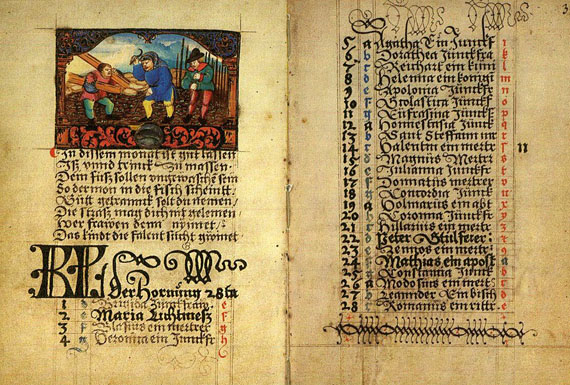 In dissem monat ist gut lassen
Iß vnnd trinck zu massen
Den fuß sollen ungewasche sein
So der mon in die fisch scheintt
Gutt getranck solt du nemen
Die straß mag dich nit
Wer frawen denn nymet
Das kindt die
KL der Hornung 28 ta
1 d Brigida Junckfraw e
2 e Maria Lichtmeß f
3 f Blasius ein mertrer g
4 g Veronica ein Junckfr h
3
5 a Agatha Ein Junckf i
6 b Dorathea Junckfra k
7 Reichart ein kuni l
8 d Helenna ein konigi m
9 e Apolonia Junckf n
10 f Scolastica Junckf o
11 g Eufrasina Junckf p
12 a Junckf q
13 b Sant Steffann in r
14 Valentin ein mertr s
15 d Magnus Mertri t
16 e Juliana Junckfr v
17 f Donnatus mertrer u
18 g Concordia Junckfr x
19 a Volmarius ein abt y
20 b Coronna Junckfr z
21 Hillarius ein mertr
22 d Peter Stulfeier
23 e ein mertr a
24 f Mathias ein apost b
25 g Constantia Junckf c
26 a Modostus ein mertr d
27 b Leannder Ein bisch e
28 Romanus ein rittr
11